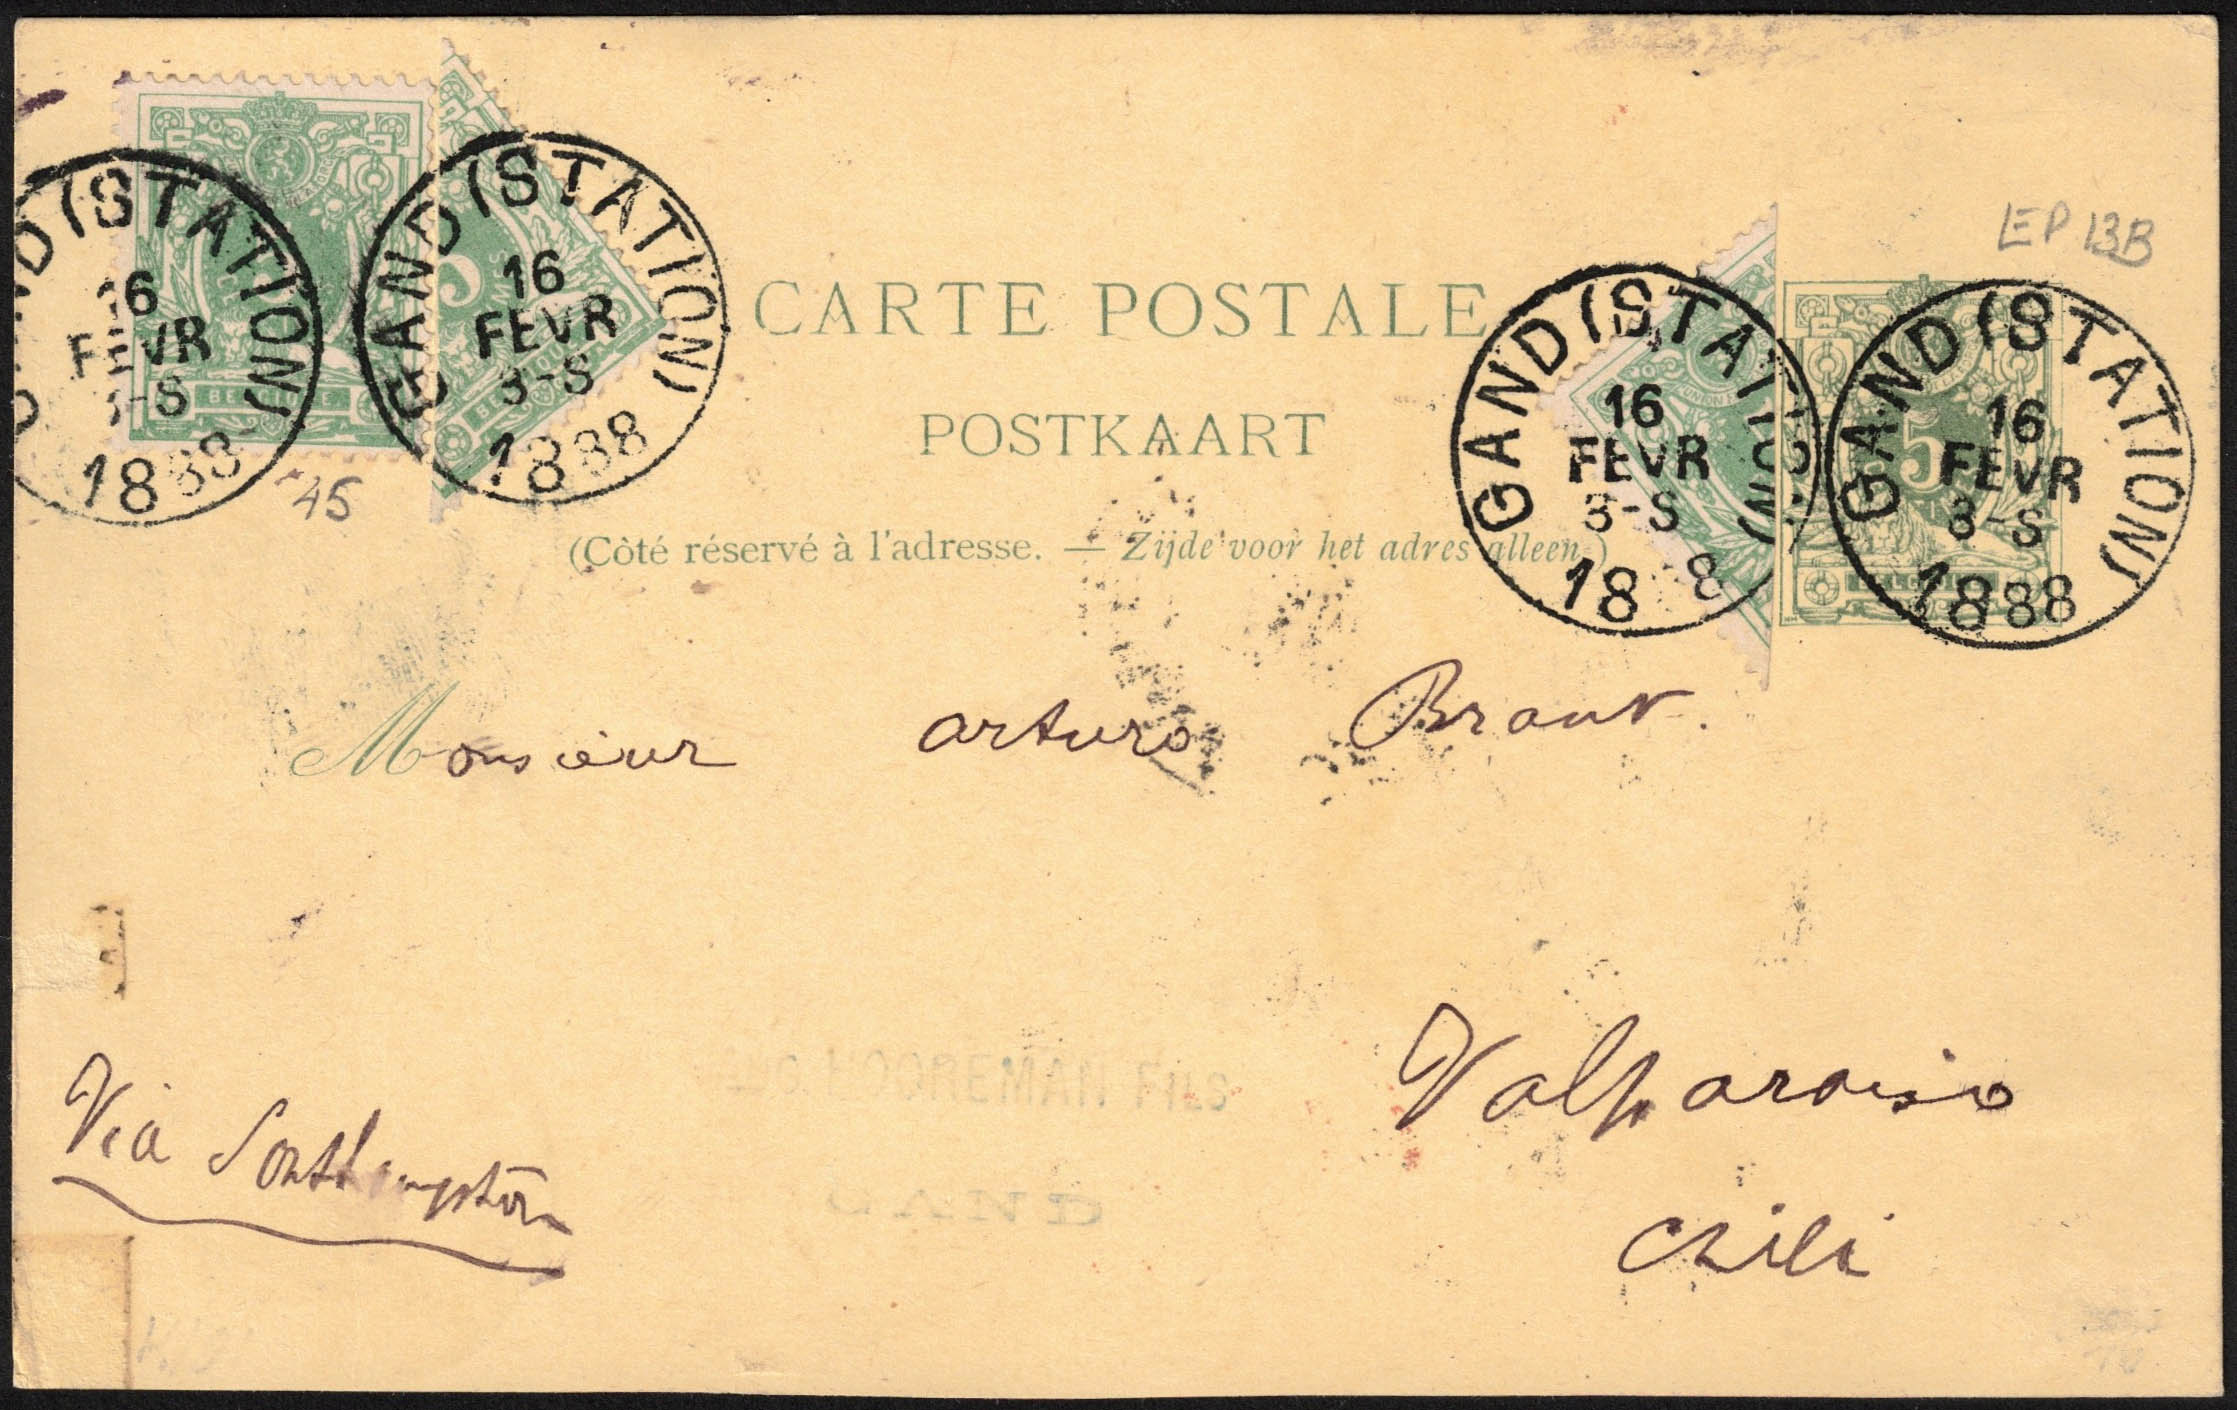 EP 13B
GAND (STATION)
16
FEVR
3-S
1888
GAND (STATION)
16
FEVR
3-S
1888
GAND (STATION)
16
FEVR
3-S
18 8
GAND (STATION)
16
FEVR
3-S
1888
BELGIQUE
5
5
CARTE POSTALE
POSTKAART
45
(Côté réservé à l'adresse. — Zijde voor het adres alleen.)
Monsieur arturo Braun.
MOOREMAN FILS
GAND
Via Southampton
Valparaiso
Chili